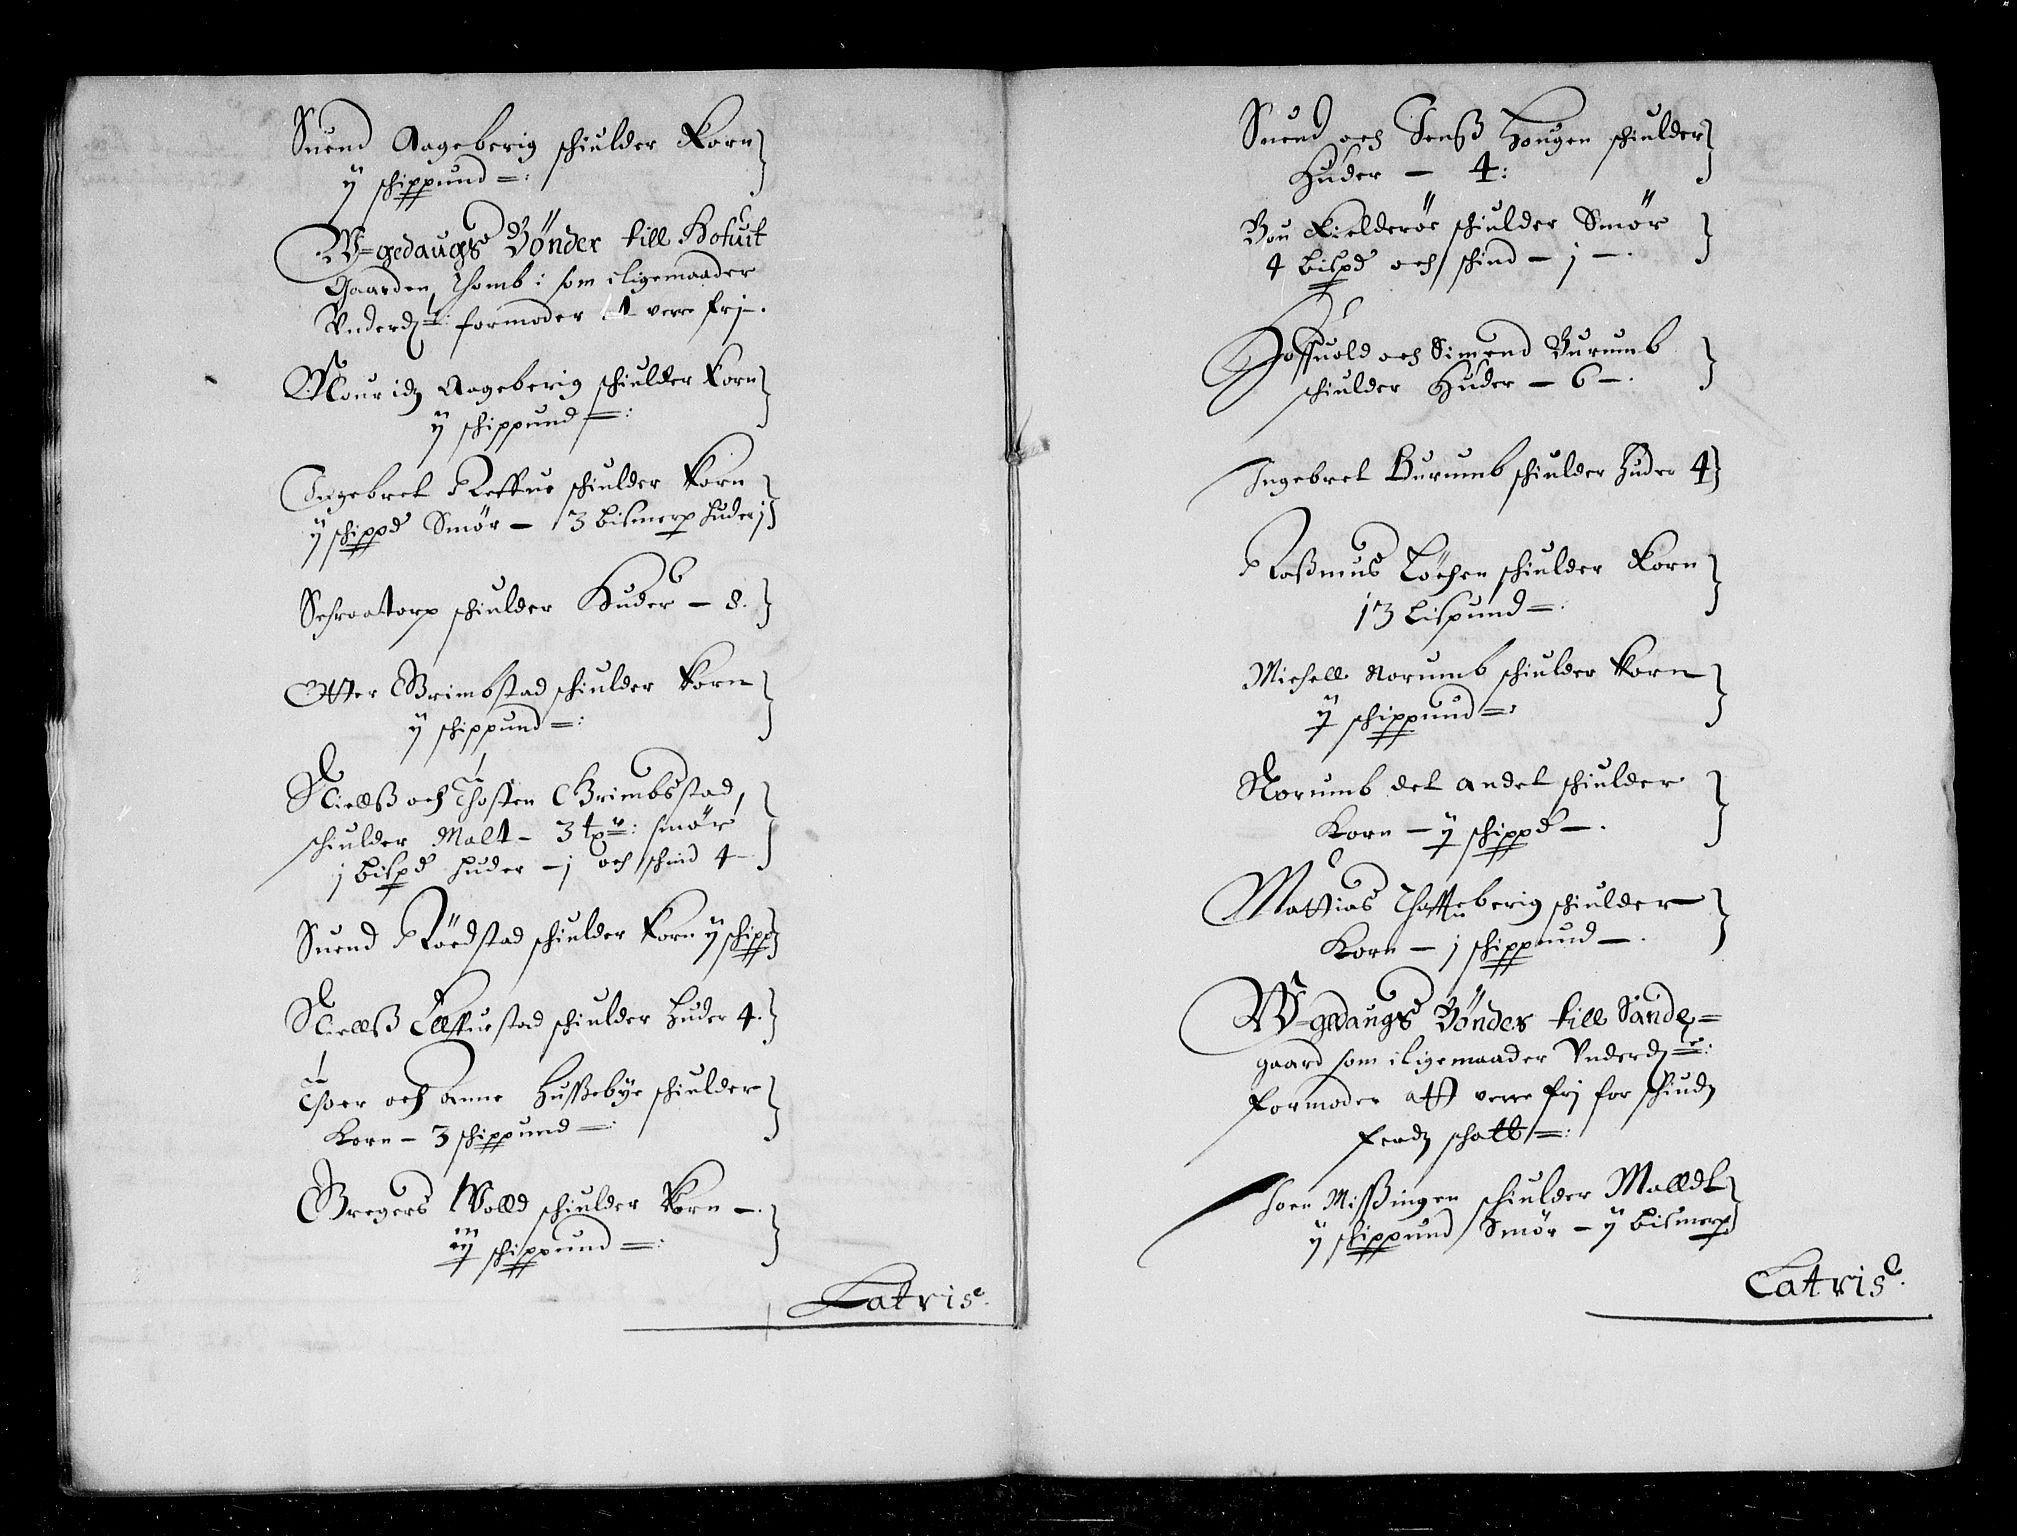 Suend Aageberig schiulder Korn
ij schippund =:
W=gedaugs Bönder till Hofuit
Gaarden, Thomb: som iligemaader
Vnderdt: formoder At verre frj -.
Mouridz Aageberig schiulder Korn
ij schippund =:
Ingebret Reffue schiulder Korn
ij schippd Smör - 3 bismerp huder j
Schraatorp schiulder Huder - 8.
Otter Grimbstad schiulder Korn
ij schippund =:
Nielß och Thosten Grimbsstad,
schiulder Malt - 3 tpr: smör
j bispd huder - j och schind 4 -
Suend Röedstad schiulder Korn ij schipp
Nielß Elffuestad schiulder huder 4.
Thoer och Anne Hußebÿe schiulder
Korn - 3 schippund =:
Gregers Wolld schiulder Korn -.
iij schippund =:
Latris.
Suend och Jenß Hougen schiulder
Huder - 4:
Bou Kielderöe schiulder Smör
4 bispd och schind - j -.
Hoffuold och Simend Burumb
schiulder Huder - 6 -.
Ingebret Burumb schiulder huder 4
Raßmus Löchen schiulder Korn
13 Lispund =:
Michell Norumb schiulder Korn
ij schippund =:
Norumb det andet schiulder
Korn - ij schippd -.
Mattias Thaffueberig schiulder
Korn - j schippund -.
W=gedaugs Bönder till Sande=
gaard som iligemaader Vnderdt:
formoder att verre frj for schiudz
ferdz schatt =:
Joen Mißingen schiulder Malldt
ij schippund Smör - ij bismerp
Latris.